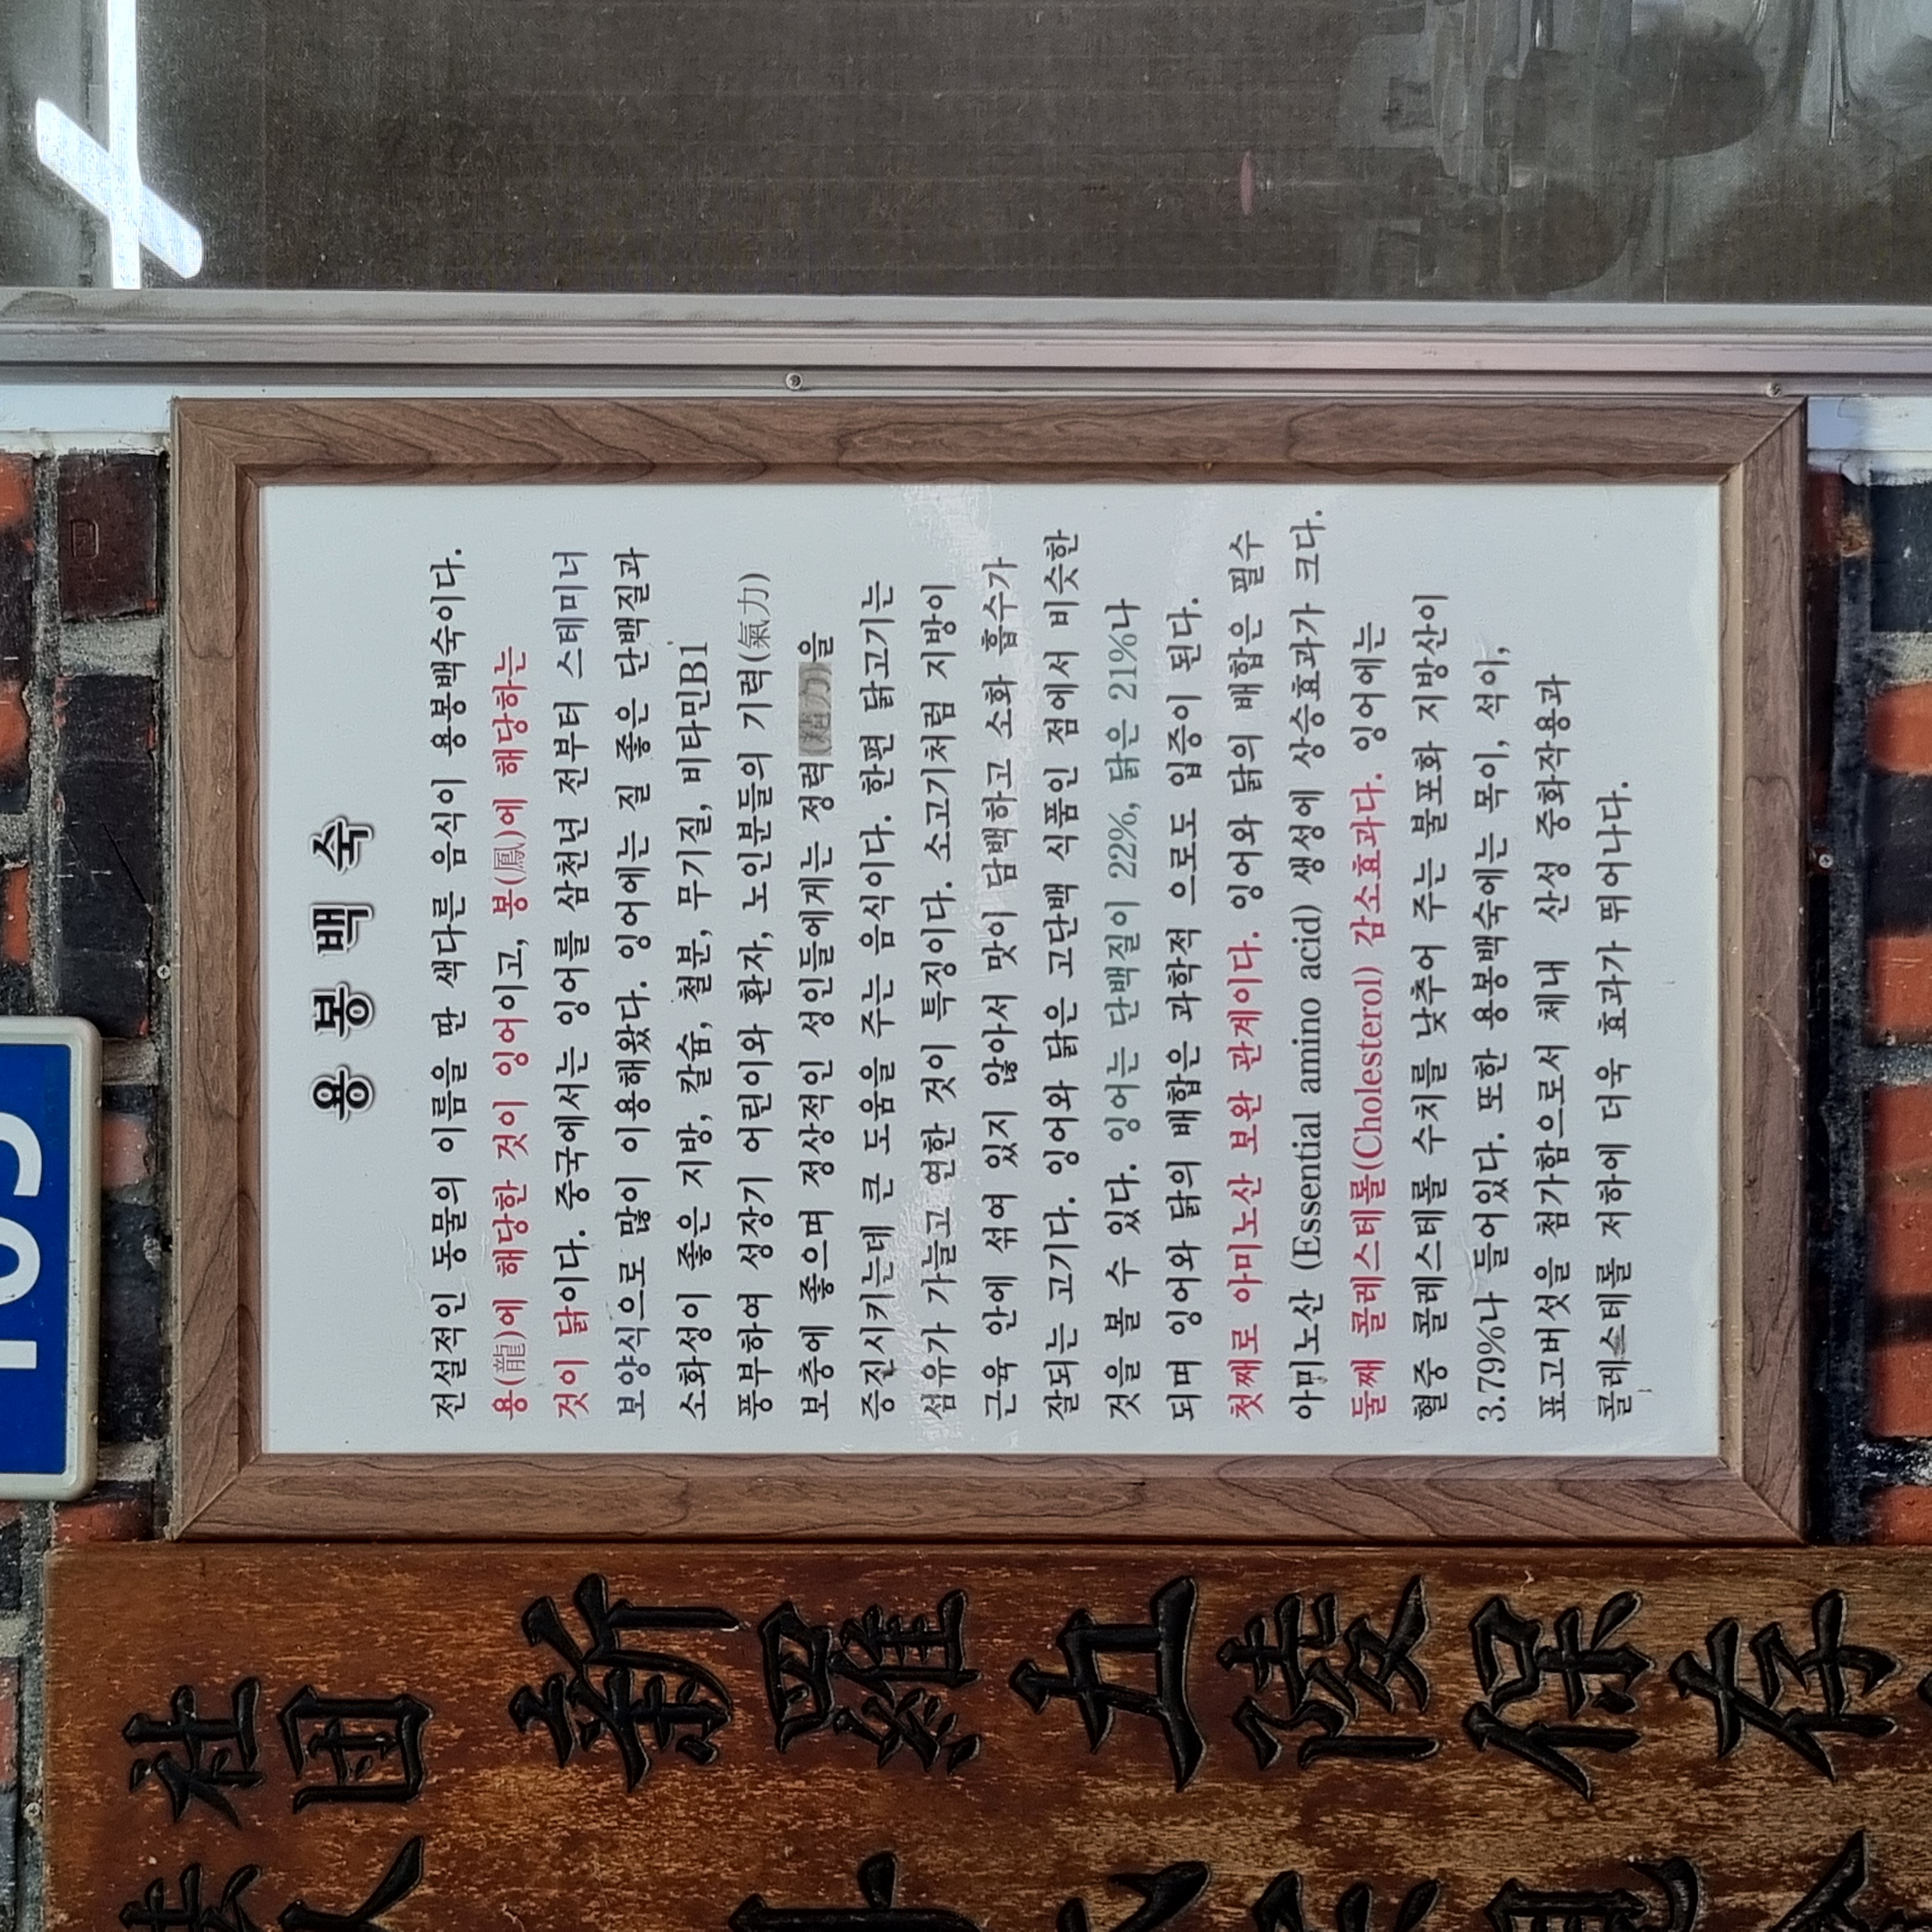 용 봉 백 숙
전설적인 동물의 이름을 딴 색다른 음식이 용봉백숙이다.
용(龍)에 해당한 것이 잉어이고, 봉(鳳)에 해당하는
것이 닭이다. 중국에서는 잉어를 삼천년 전부터 스테미너
보양식으로 많이 이용해왔다. 잉어에는 질 좋은 단백질과
소화성이 좋은 지방, 칼슘, 철분, 무기질, 비타민B1
풍부하여 성장기 어린이와 환자, 노인분들의 기력(氣力)
보충에 좋으며 정상적인 성인들에게는 정력 을
증진시키는데 큰 도움을 주는 음식이다. 한편 닭고기는
섬유가 가늘고 연한 것이 특징이다. 소고기처럼 지방이
근육 안에 섞여 있지 않아서 맛이 담백하고 소화 흡수가
잘되는 고기다. 잉어와 닭은 고단백 식품인 점에서 비슷한
것을 볼 수 있다. 잉어는 단백질이 22%, 닭은 21%나
되며 잉어와 닭의 배합은 과학적 으로도 입증이 된다.
첫째로 아미노산 보완 관계이다. 잉어와 닭의 배합은 필수
아미노산 (Essential amino acid) 생성에 상승효과가 크다.
둘째 콜레스테롤(Cholesterol) 감소효과다. 잉어에는
혈중 콜레스테롤 수치를 낮추어 주는 불포화 지방산이
3.79%나 들어있다. 또한 용봉백숙에는 목이, 석이,
표고버섯을 첨가함으로서 체내 산성 중화작용과
콜레스테롤 저하에 더욱 효과가 뛰어나다.
社団
新羅五陵保存